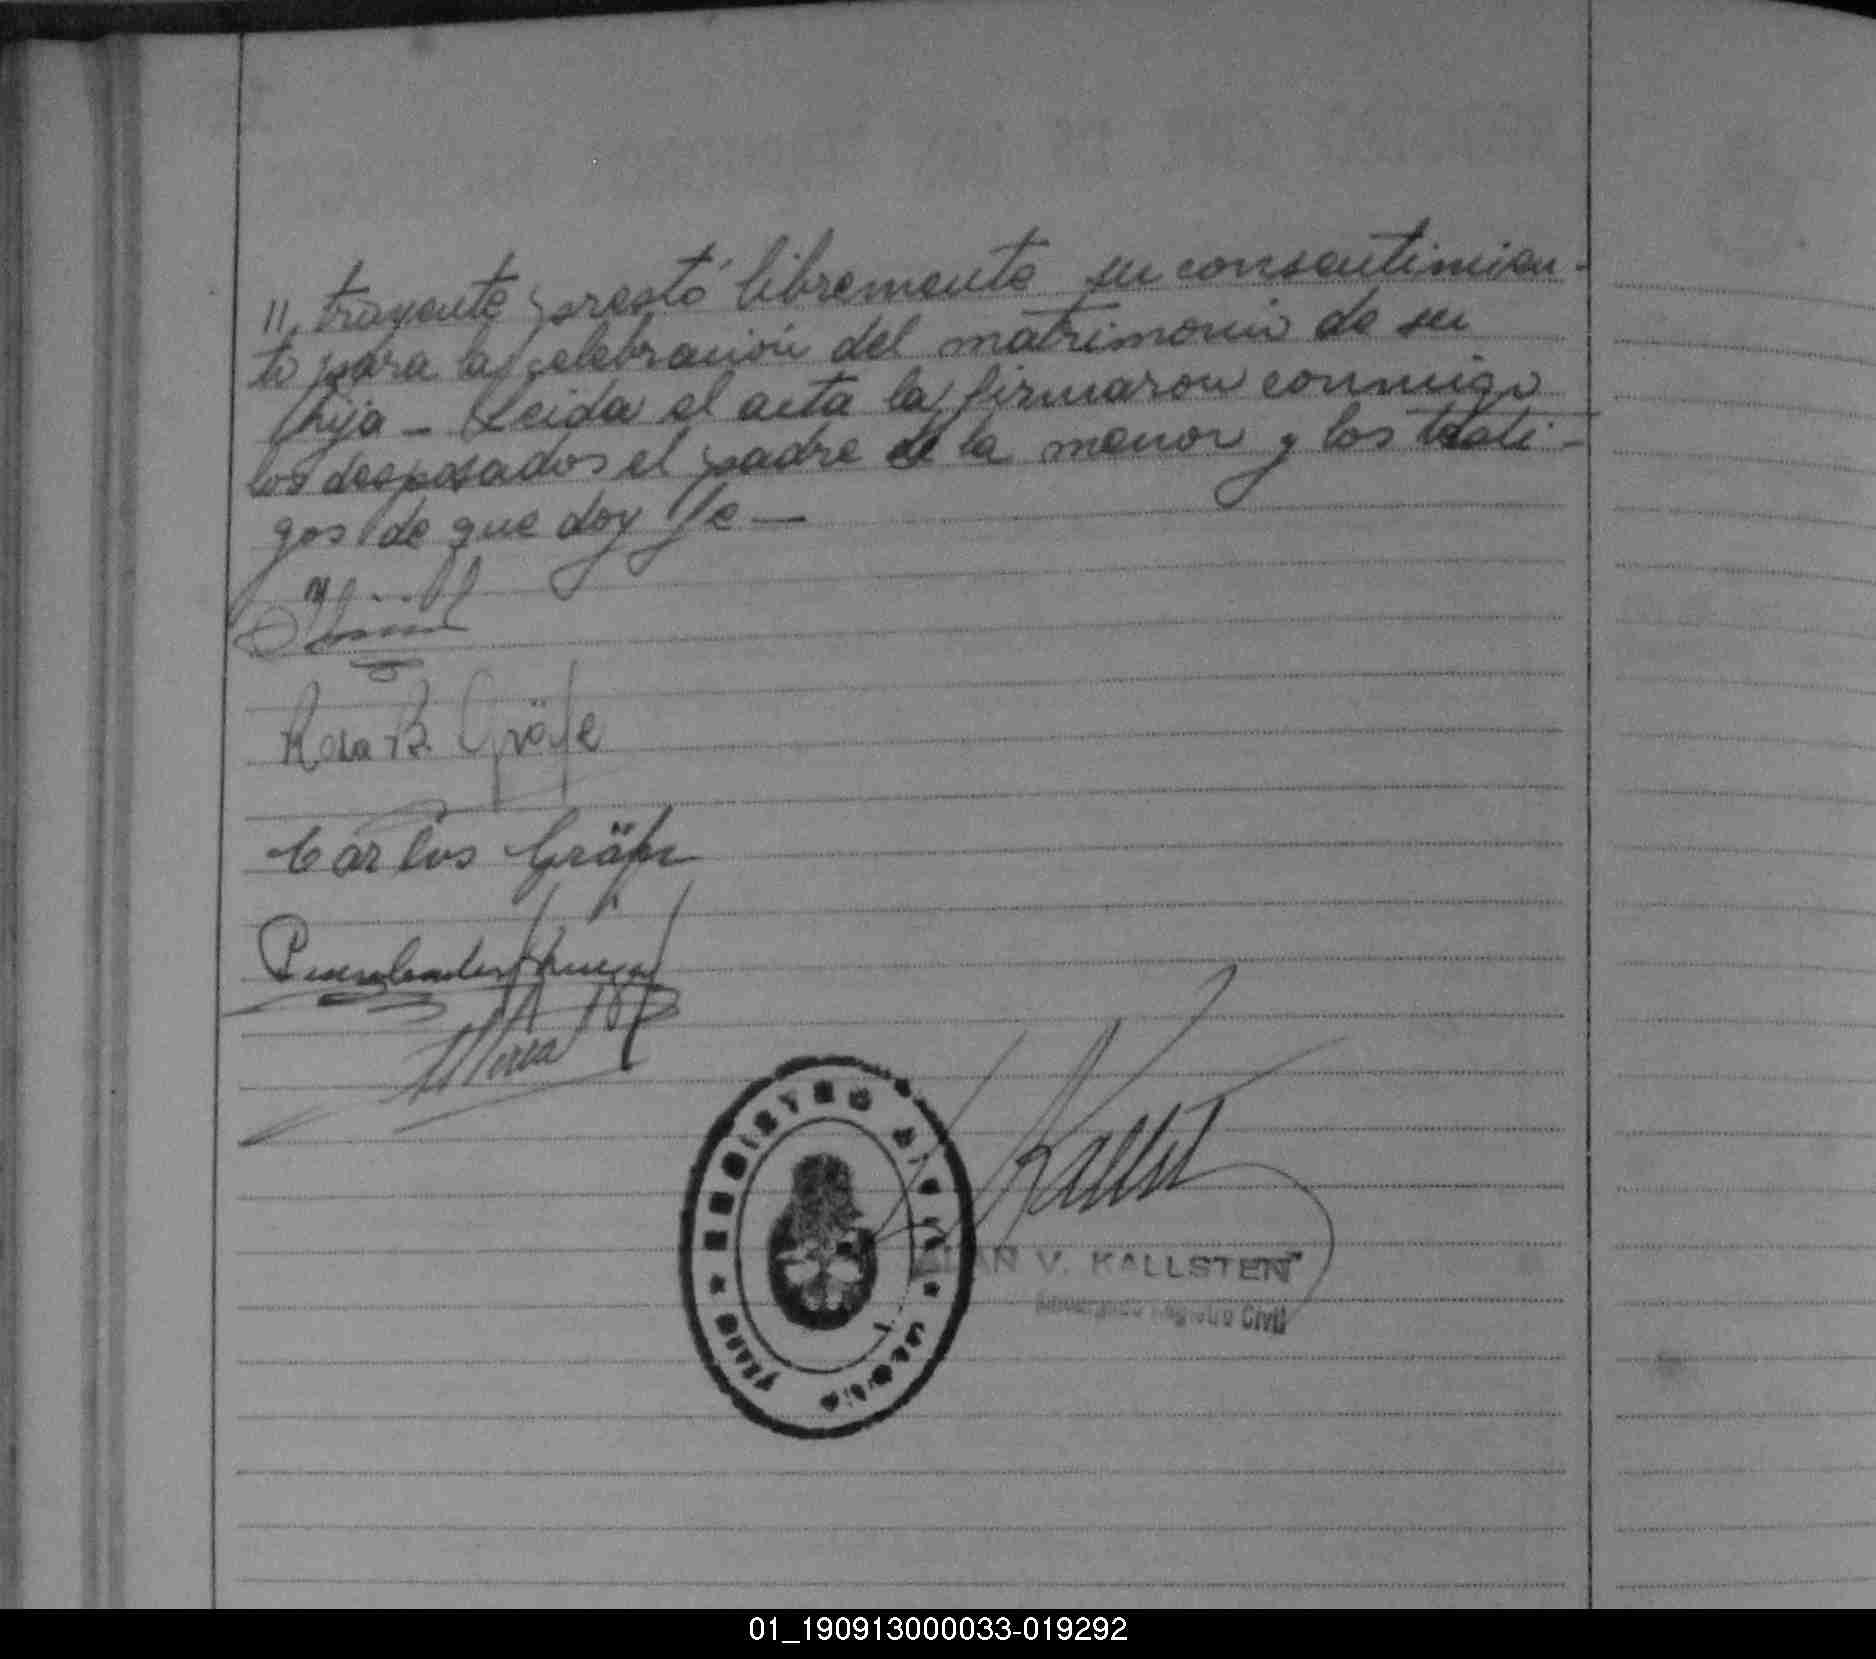 11, trayente prestó libremente su consentimien-
to para la celebración del matrimonio de su
hija - Leida el acta la firmaron conmigo
los desposados el padre de la menor y los testi-
gos de que doy fe —
Rosa B. Gräfe
Carlos Gräfe
REGISTRO CIVIL
Kallst
V. KALLSTEN
Registro Civil
01_190913000033-019292